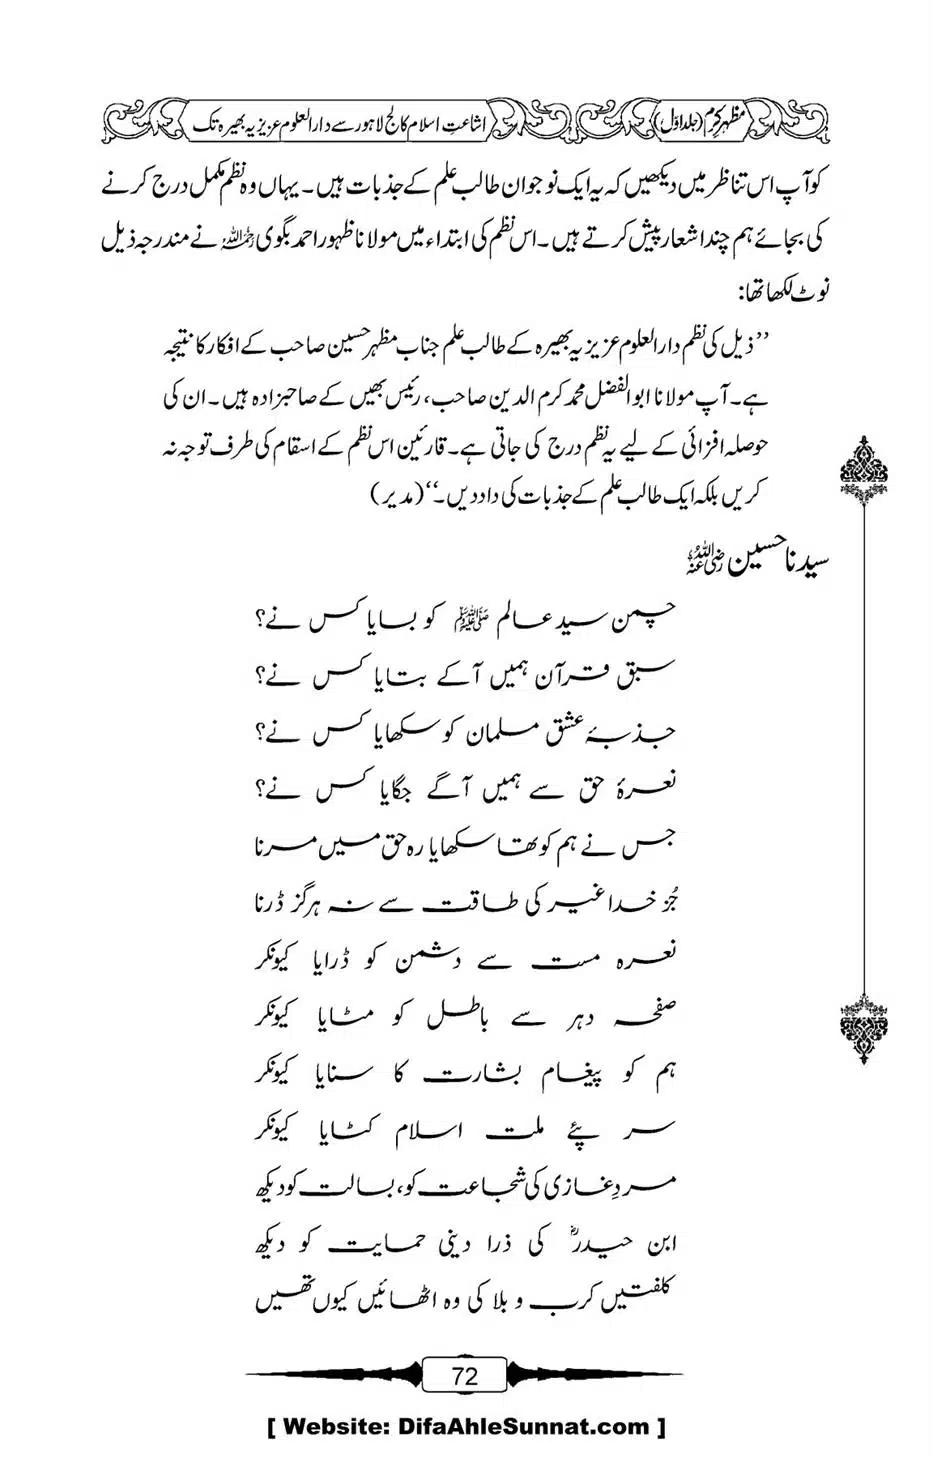 مظہرِ کرم (جلد اوّل) اشاعتِ اسلام کالج لاہور سے دارالعلوم عزیزیہ بھیرہ تک
کو آپ اس تناظر میں دیکھیں کہ یہ ایک نوجوان طالب علم کے جذبات ہیں۔ یہاں وہ نظم مکمل درج کرنے
کی بجائے ہم چند اشعار پیش کرتے ہیں۔ اس نظم کی ابتداء میں مولانا ظہور احمد بگوی رحمہ اللہ نے مندرجہ ذیل
نوٹ لکھا تھا:
’’ذیل کی نظم دارالعلوم عزیزیہ بھیرہ کے طالب علم جناب مظہر حسین صاحب کے افکار کا نتیجہ
ہے۔ آپ مولانا ابوالفضل محمد کرم الدین صاحب، رئیس بھیں کے صاحبزادہ ہیں۔ ان کی
حوصلہ افزائی کے لیے یہ نظم درج کی جاتی ہے۔ قارئین اس نظم کے اسقام کی طرف توجہ نہ
کریں بلکہ ایک طالب علم کے جذبات کی داد دیں۔‘‘ (مدیر)
سیدنا حسین رضی اللہ عنہ
چمن سید عالم ﷺ کو بسایا کس نے؟
سبق قرآن ہمیں آکے بتایا کس نے؟
جذبۂ عشق مسلمان کو سکھایا کس نے؟
نعرۂ حق سے ہمیں آگے جگایا کس نے؟
جس نے ہم کو تھا سکھایا رہ حق میں مرنا
جُز خدا غیر کی طاقت سے نہ ہرگز ڈرنا
نعرہ مست سے دشمن کو ڈرایا کیونکر
صفحہ دہر سے باطل کو مٹایا کیونکر
ہم کو پیغام بشارت کا سنایا کیونکر
سر پئے ملت اسلام کٹایا کیونکر
مردِ غازی کی شجاعت کو، بسالت کو دیکھ
ابن حیدرؓ کی ذرا دینی حمایت کو دیکھ
کلفتیں کرب و بلا کی وہ اٹھائیں کیوں تھیں
72
[ Website: DifaAhleSunnat.com ]